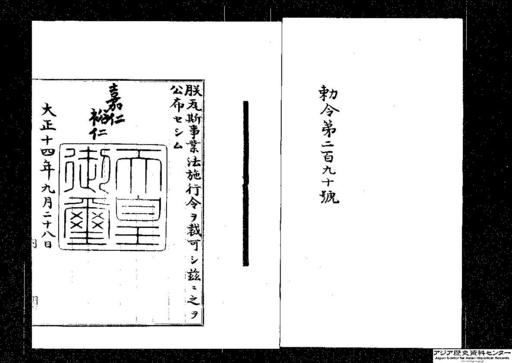 勅令第二百九十號
朕瓦斯事業法施行令ヲ裁可シ茲ニ之ヲ
公布セシム
嘉仁
裕仁
天皇
御璽
大正十四年九月二十八日
アジア歴史資料センター
Japan Center for Asian Historical Records